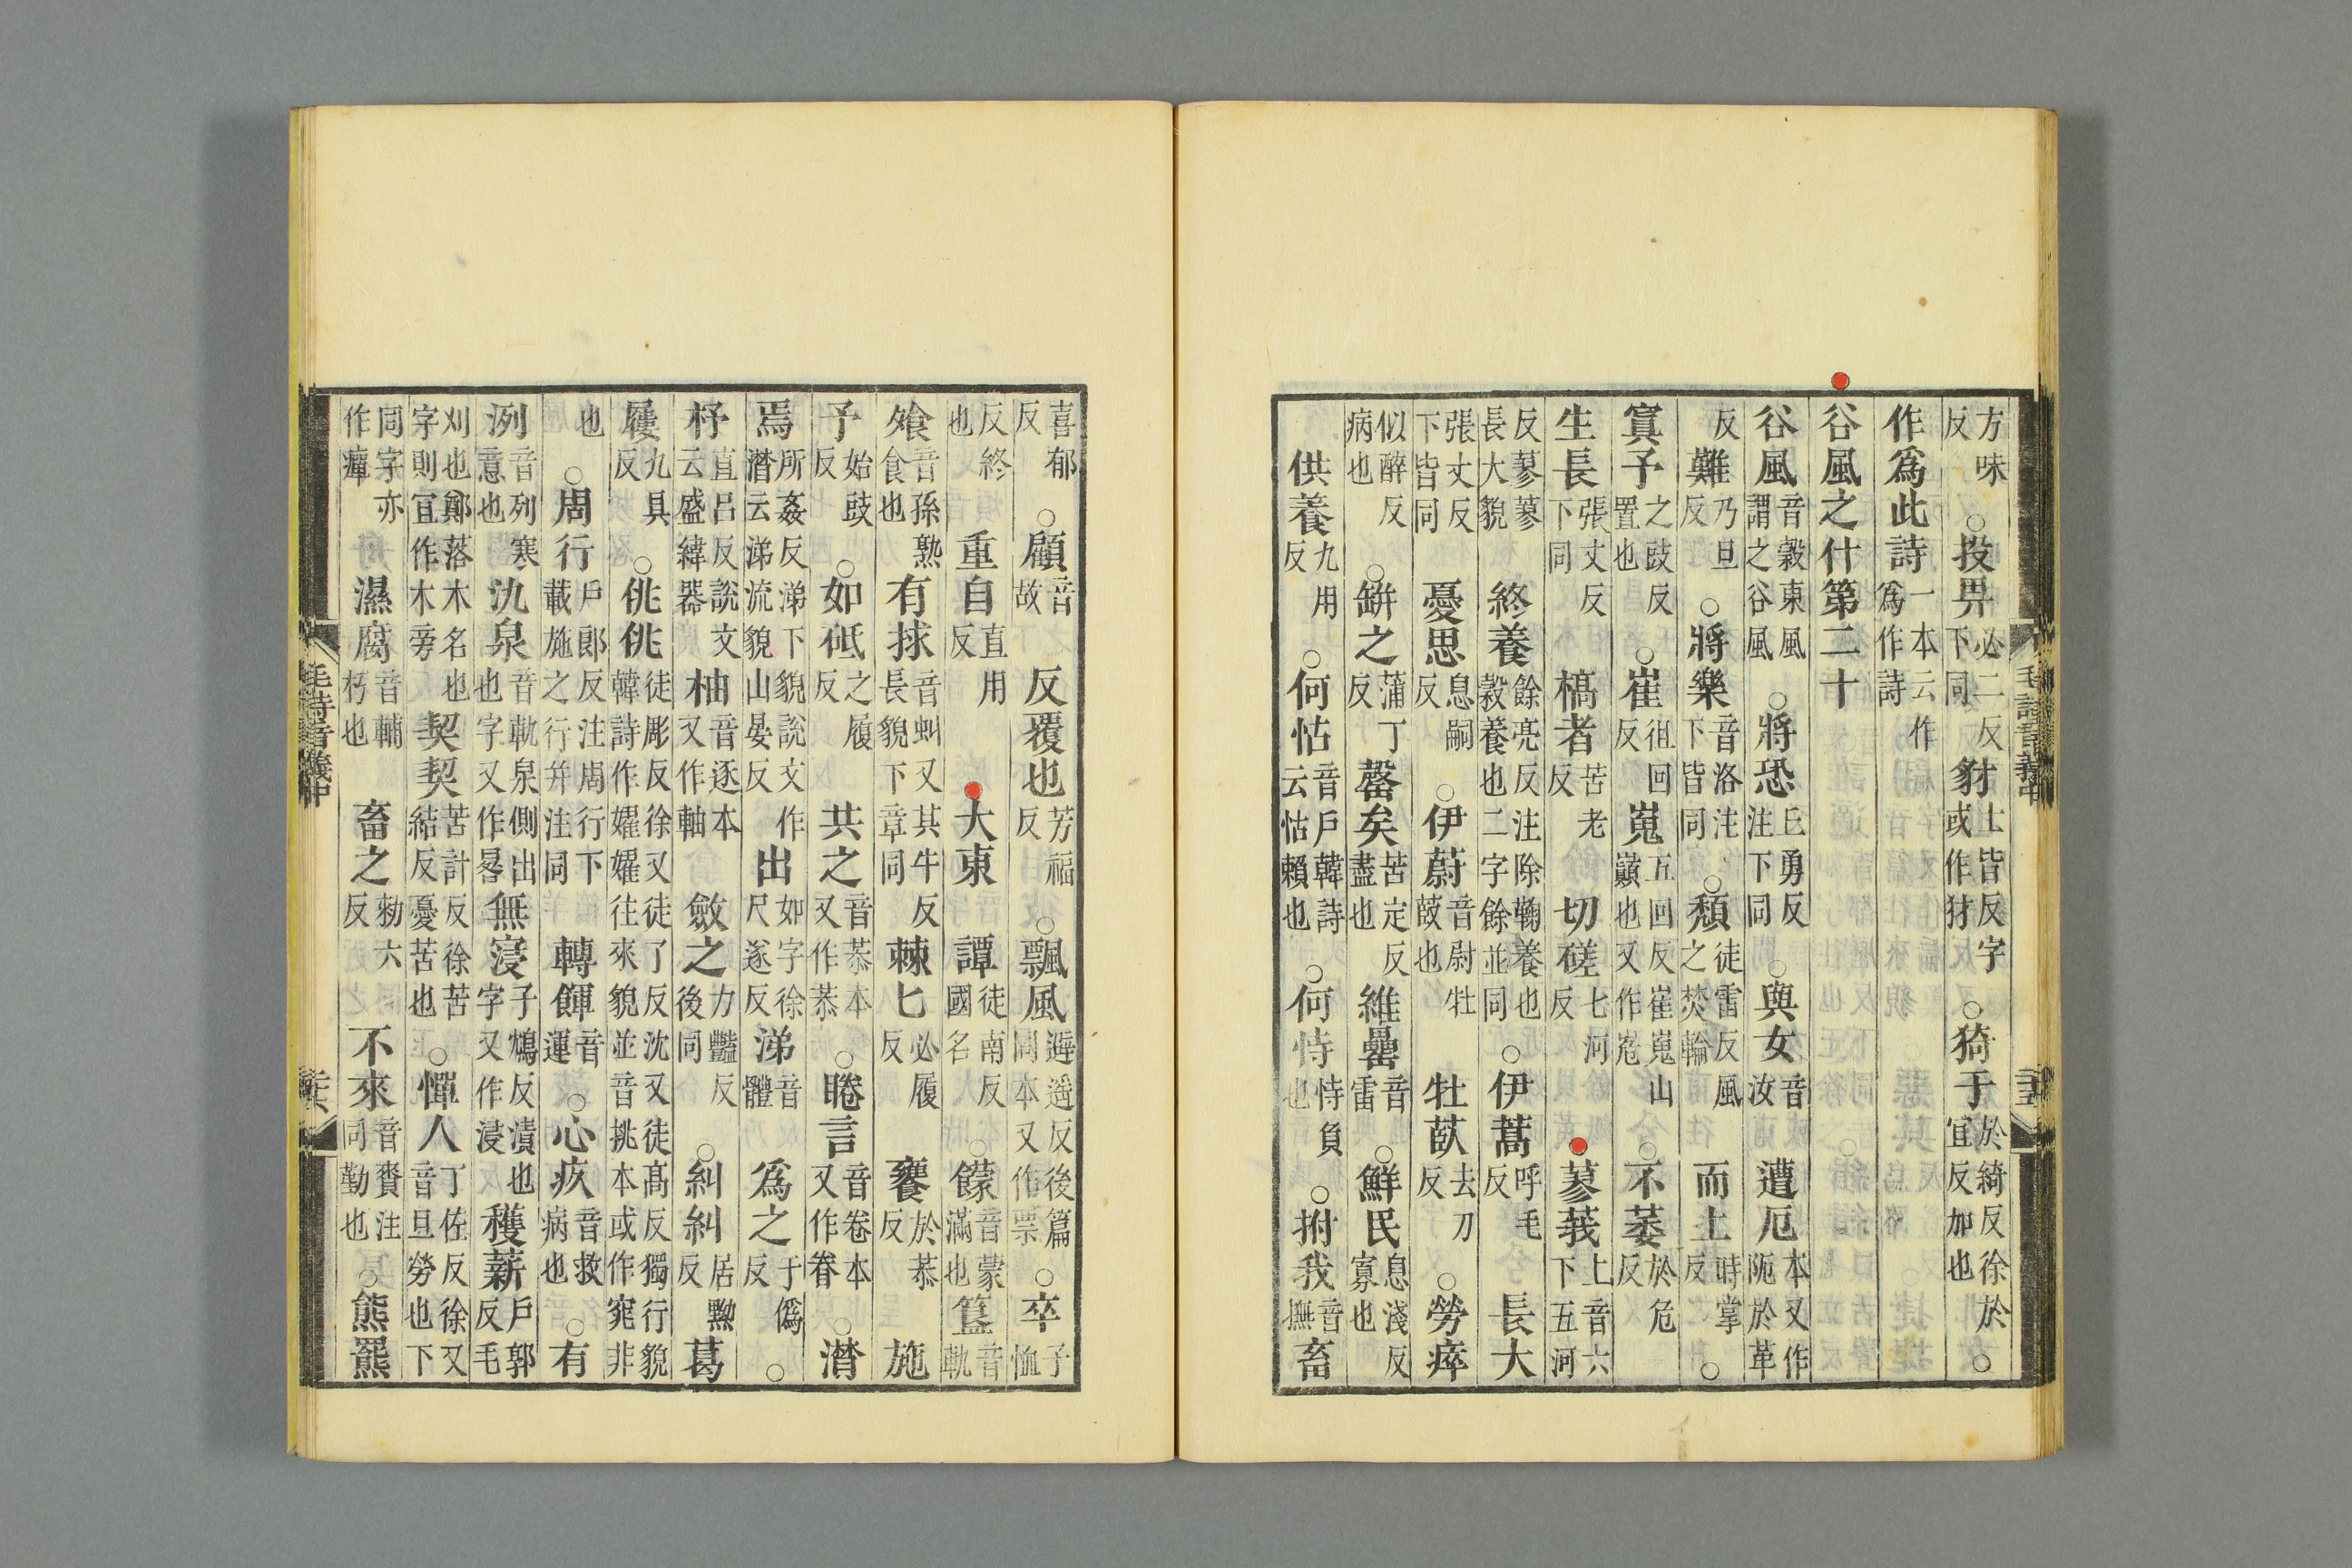 方味反○投畀必二反下同豺士皆反字或作犲○猗于於綺反徐於宜反加也○
作爲此詩一本云作爲作詩
谷風之什第二十
谷風音穀東風謂之谷風○將恐丘勇反注下同○與女音汝遭厄本又作阨於革
反難乃旦反○將樂音洛注下皆同○頹徒雷反風之焚輪而上時掌反○
寘予之豉反置也○崔徂回反嵬五回反崔嵬山巔也又作嵬○不萎於危反
生長張丈反下同槁者苦老反切磋七河反蓼莪上音六下五河
反蓼蓼長大貌終養餘亮反注除鞠養也穀養也二字餘並同○伊蒿呼毛反長大
張丈反下皆同憂思息嗣反○伊蔚音尉牡菣也牡菣去刀反○勞瘁
似醉反病也○缾之蒲丁反罄矣苦定反盡也維罍音雷○鮮民息淺反寡也
供養九用反○何怙音戶韓詩云怙賴也○何恃恃負也○拊我音撫畜
毛詩音義中
喜郁反○顧音故反覆也芳福反○飄風避遥反後篇同本又作票○卒子恤
反終也重自直用反大東譚徒南反國名○饛音蒙滿也簋音軌
飧音孫熟食也有捄音虯又其牛反長貌下章同棘匕必履反饔於恭反施
予始豉反○如砥之履反共之音恭本又作恭○睠言音卷本又作眷○潸
焉所姦反涕下貌說文作潸云涕流貌山晏反出如字徐尺遂反涕音體爲之于僞反○
杼直呂反說文云盛緯器柚音逐本又作軸斂之力豔反後同○糾糾居黝反葛
屨九具反○佻佻徒彫反徐又徒了反沈又徒高反獨行貌韓詩作嬥嬥往來貌並音挑本或作窕非
也○周行戶郎反注周行下載施之行幷注同轉餫音運○心疚音救病也○有
洌音列寒意也氿泉音軌泉側出也字又作晷無浸子鴆反漬也字又作浸穫薪戶郭反毛
刈也鄭落木名也字則宜作木旁契契苦計反徐苦結反憂苦也○憚人丁佐反徐又音旦勞也下
同字亦作癉濕腐音輔朽也畜之勑六反不來音賚注同勤也○熊羆
毛詩音義中